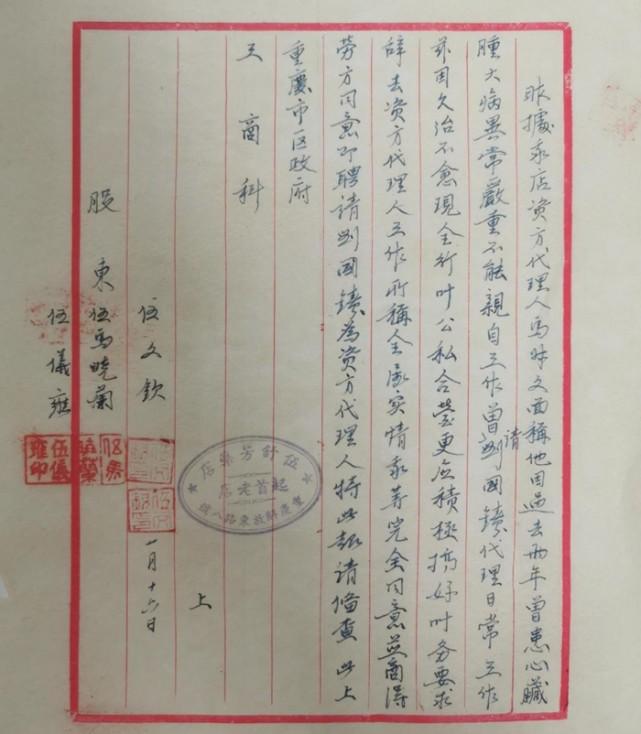 昨據永店资方代理人馬时文面稱他因过去两年曾患心臟
腫大病異常嚴重不能親自工作曾請刘國鏡代理日常工作
兹因久治不愈現全行叶公私合營更应積極搞好叶务要求
辞去资方代理人工作所稱全屬实情永等完全同意並商得
劳方同意即聘請刘國鏡為资方代理人特此報請備查此上
重慶市区政府
工商科
伍文欽
股東伍馬晓蘭
伍儀雍
上
一月十六日
伍舒芳藥店
起首老店
重慶解放東路八號
伍儀雍印